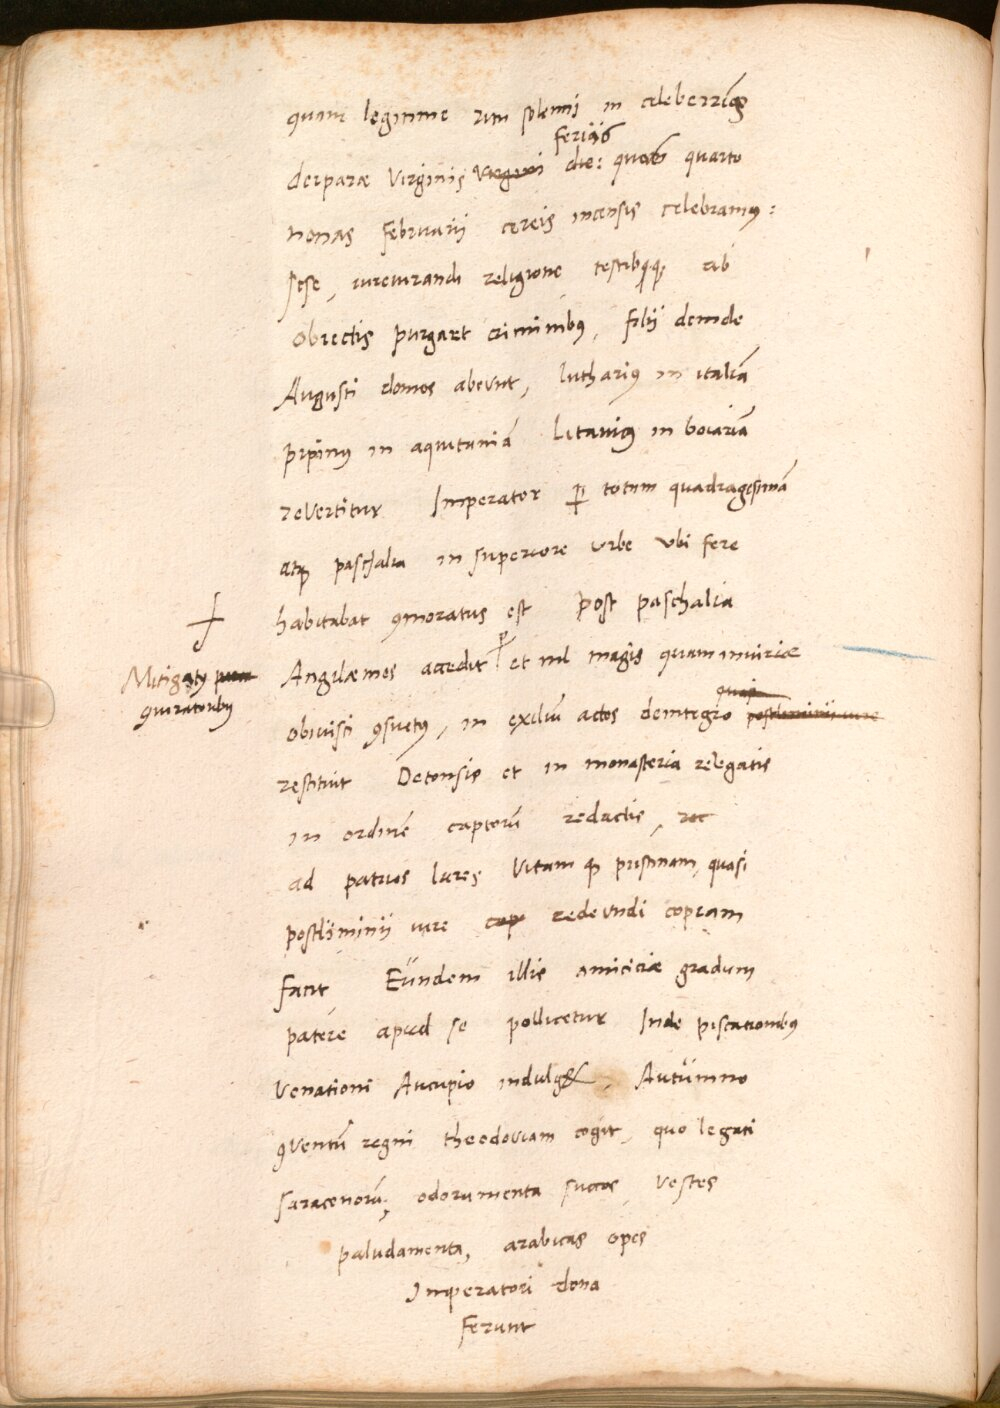 quam legitime ritu solemni in celeberrimis
feriis
deiparæ Virginis Virgini die: quam quarto
nonas februarii cereis incensis celebramus:
sese, iureiurandi religione testibusque ab
obiectis purgaret criminibus, filii deinde
Augusti domos abeunt, lutharius in italiā
pipinus in aquitaniā Litavicus in boiariā
revertitur Imperator per totum quadragesimā
atque paschalia in superiore urbe ubi fere
habitabat ꝯmoratus est Post paschalia
Angilæmos accedit et nil magis quam iniuriæ
Mitigatus
ꝯiuratoribus
oblivisci ꝯsuetus, in exiliū actos deintegro
quasi postliminii iure
restituit Detonsis et in monasteria relegatis
in ordinē captorū redactis,
ad patrios lares Vitam que pristinam, quasi
postliminii iure cop redeundi copiam
facit Eundem illis amiciciæ gradum
patere apud se pollicetur Inde piscationibus
venationi Aucupio indulget, Autumno
ꝯventū regni theodoviam cogit, quo legati
saracenorū, odoramenta succos, vestes
paludamenta, arabicas opes
Imperatori dona
ferunt